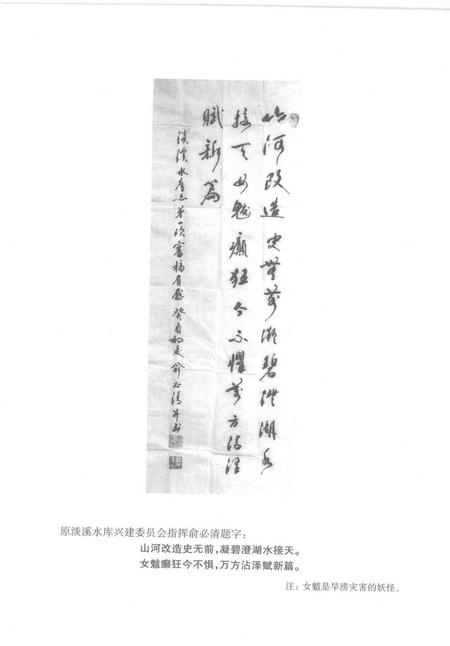 山河改造史無前凝碧澄湖水
接天女魃癲狂今不懼萬方沾澤
賦新篇
淡溪水库志第一次審稿有感 癸酉初夏 俞必清并书
原淡溪水库兴建委员会指挥俞必清题字：
山河改造史无前，凝碧澄湖水接天。
女魃癫狂今不惧，万方沾泽赋新篇。
注：女魃是旱涝灾害的妖怪。